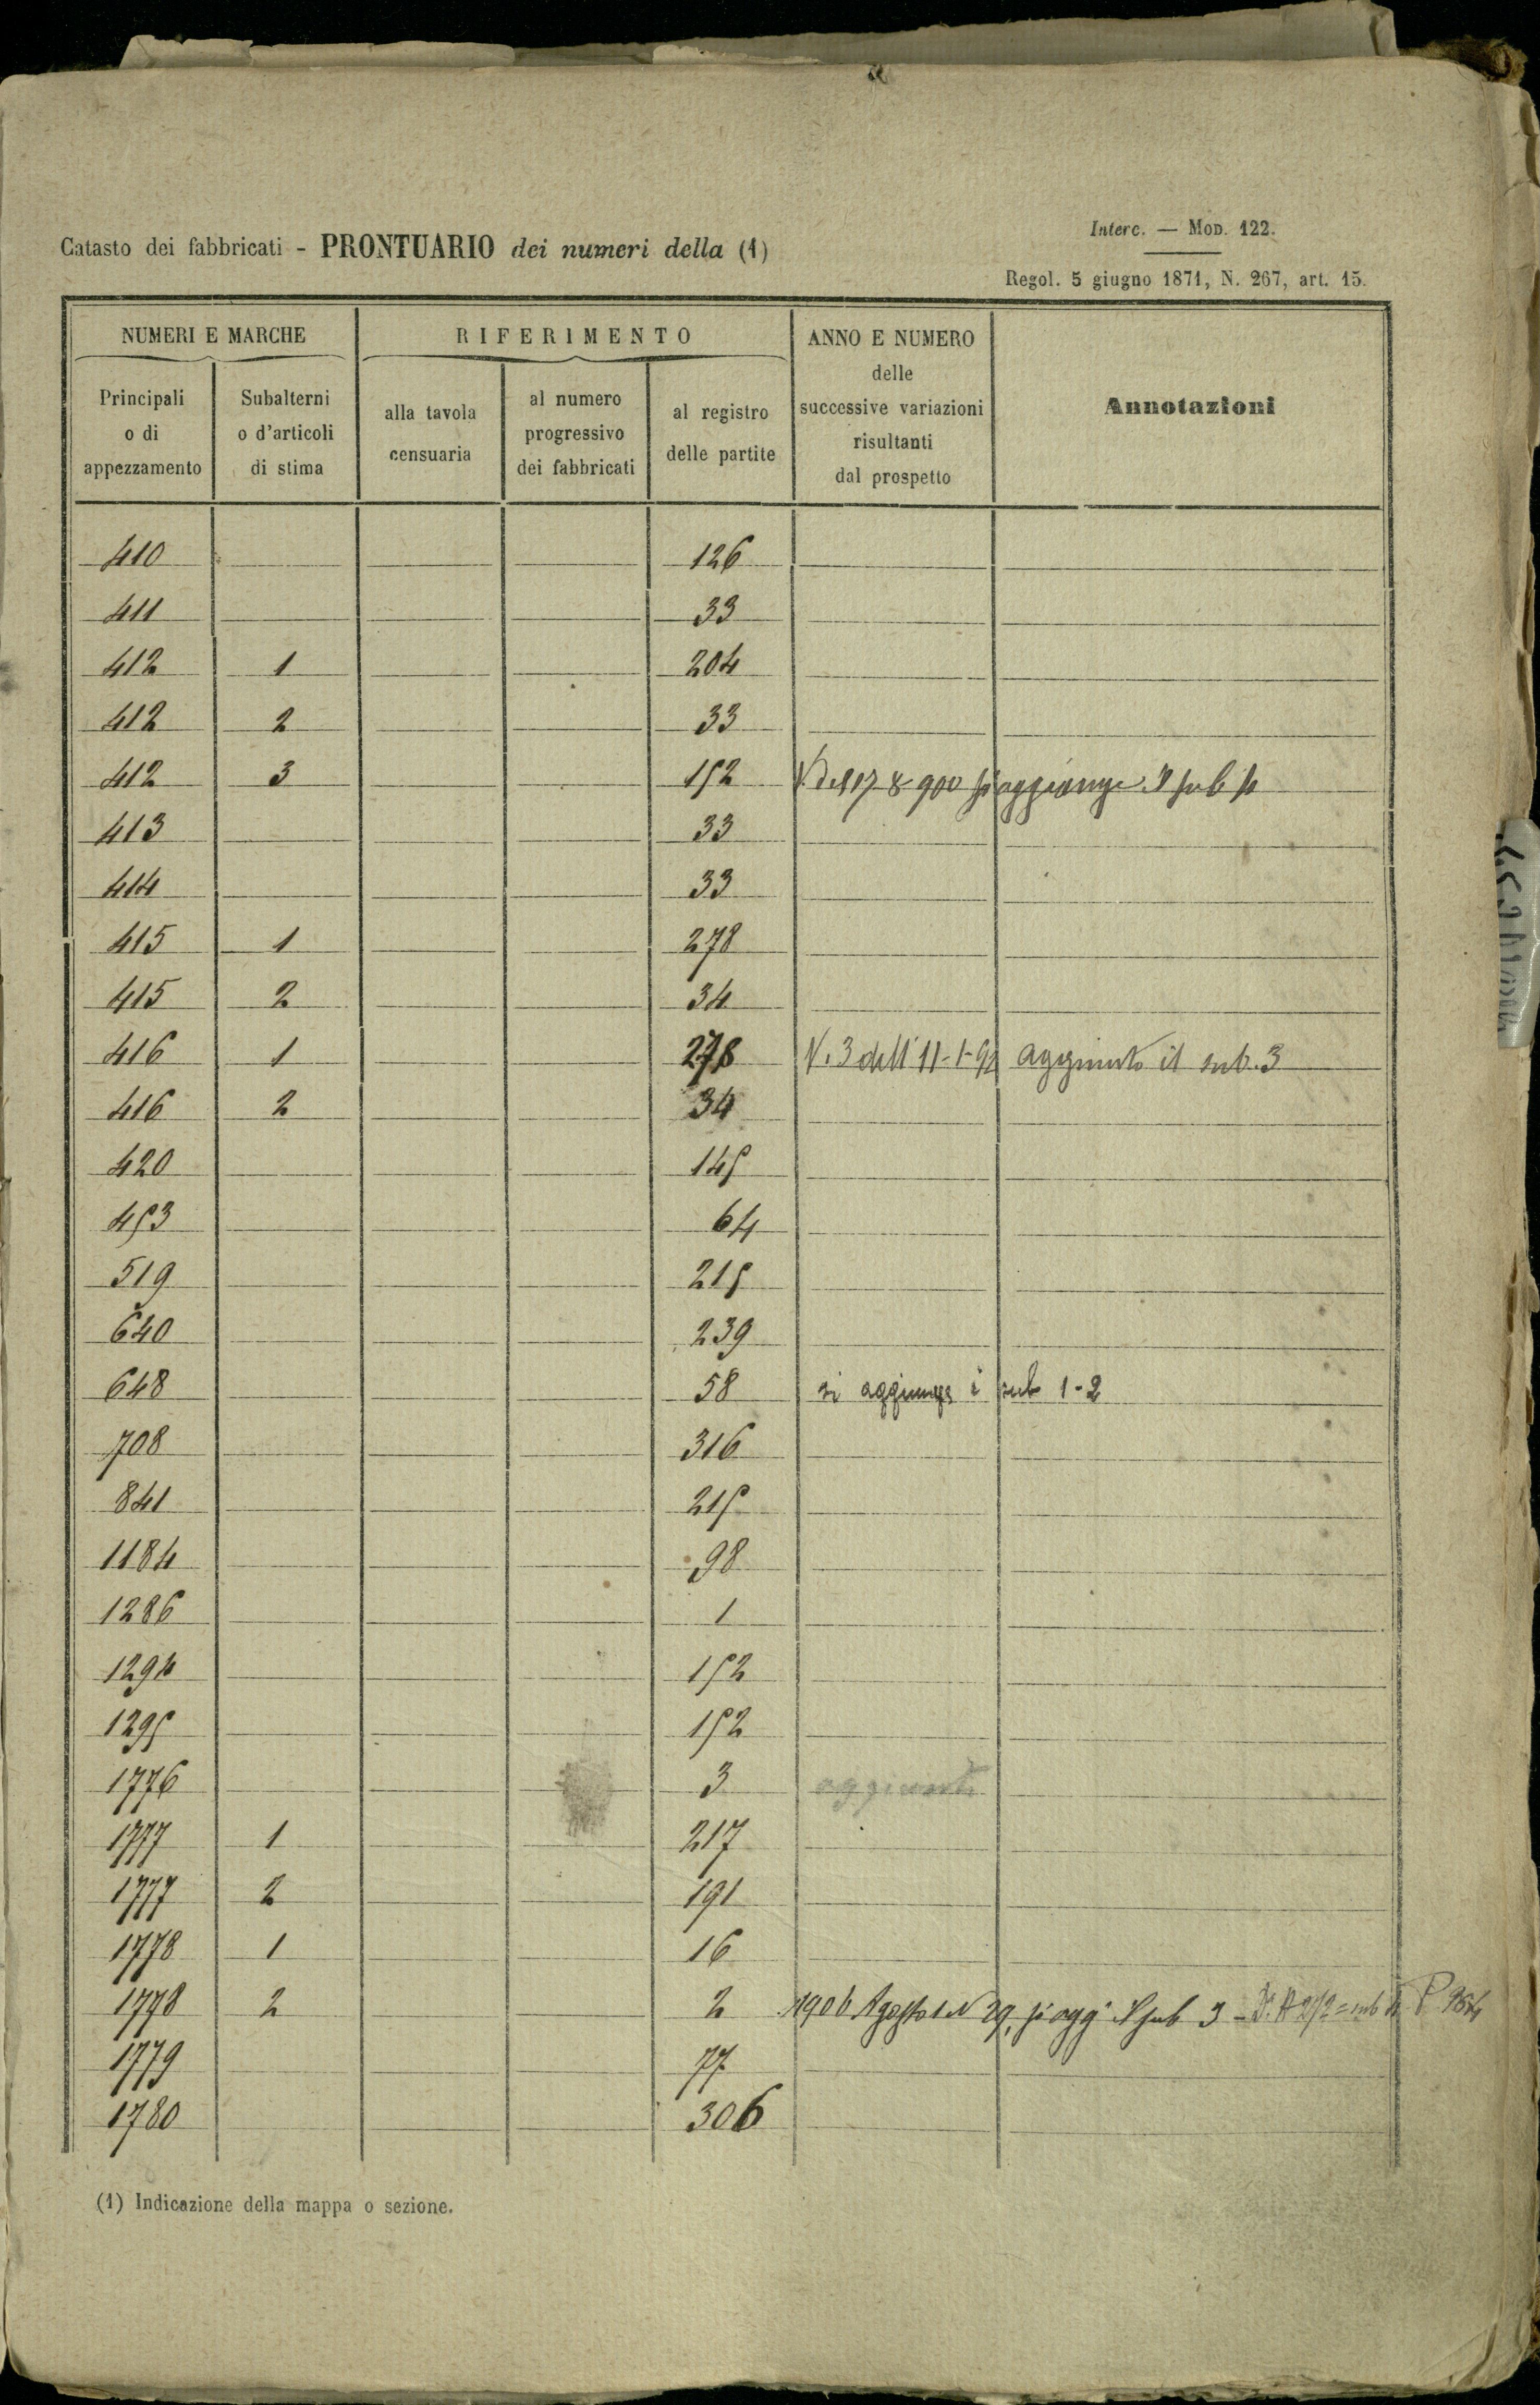 Interc. — Mod. 122.
Catasto dei fabbricati - PRONTUARIO dei numeri della (1)
Regol. 5 giugno 1871, N. 267, art. 15.
NUMERI E MARCHE RIFERIMENTO ANNO E NUMERO delle successive variazioni risultanti dal prospetto Annotazioni
Principali o di appezzamento Subalterni o d'articoli di stima alla tavola censuaria al numero progressivo dei fabbricati al registro delle partite
410 126
411 33
412 1 204
412 2 33
412 3 152 8 900 si aggiunge il sub 4
413 33
414 33
415 1 278
415 2 34
416 1 278 N. 3 dell' 11-1-92 aggiunto il sub. 3
416 2 34
420 145
453 64
519 215
640 239
648 58 si aggiunge i sub 1-2
708 316
841 215
1184 98
1286 1
1294 152
1295 152
1776 3 aggiunto
1777 1 217
1777 2 191
1778 1 16
1778 2 2 1906 Agosto 1 N 29, si agg il sub 3
1779 77
1780 306
(1) Indicazione della mappa o sezione.